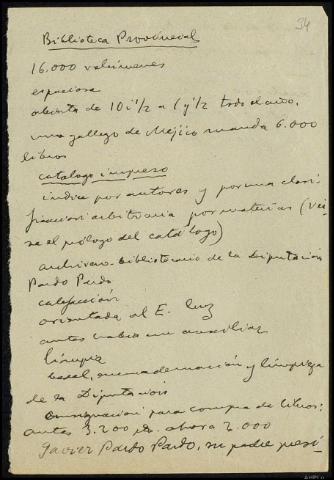 34
Biblioteca Provincial
16.000 volúmenes
espaciosa
abierta de 10 i 1/2 a 1 y 1/2 todo el año.
un gallego de Méjico manda 6.000
libros
catálogo impreso
indice por autores y por una clasi
ficacion arbitraria por materias (Vea
se el prólogo del catálogo)
archivero-bibliotecario de la Diputación
Pardo Pardo
calefacción
orientada al E. luz
antes había un auxiliar
limpia
local, encuadernación y limpieza
de la Diputación
consignación para compra de libros:
antes 3.200 pts. ahora 2.000
Javier Pardo Pardo, su padre presi-